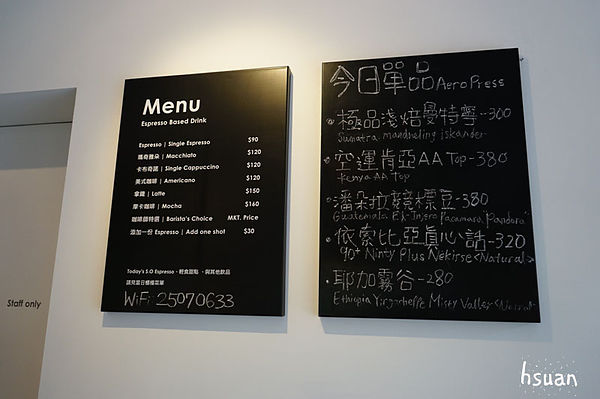 Menu
Espresso Based Drink
Espresso | Single Espresso $90
瑪奇雅朵 | Macchiato $120
卡布奇諾 | Single Cappuccino $120
美式咖啡 | Americano $120
拿鐵 | Latte $150
摩卡咖啡 | Mocha $160
咖啡師特選 | Barista's Choice MKT. Price
添加一份 Espresso | Add one shot $30
Today's S.O Espresso、輕食甜點、與其他飲品
請見當日櫃檯菜單
WiFi 25070633
今日單品 AeroPress
極品淺焙曼特寧-300
Sumatra mandheling iskander
空運肯亞AA Top-380
Kenya AA Top
潘朵拉競標豆-380
Guatemala El Injerto Pacamara "Pandora"
依索比亞真心話-320
90+ Ninty Plus Nekirse <Natural>
耶加霧谷-280
Ethiopia Yirgacheffe Misty Valley <Natural>
Staff only
hsuan